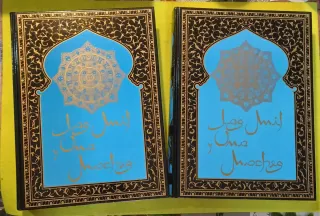 Las Mil
y Una
Noches
Las Mil
y Una
Noches